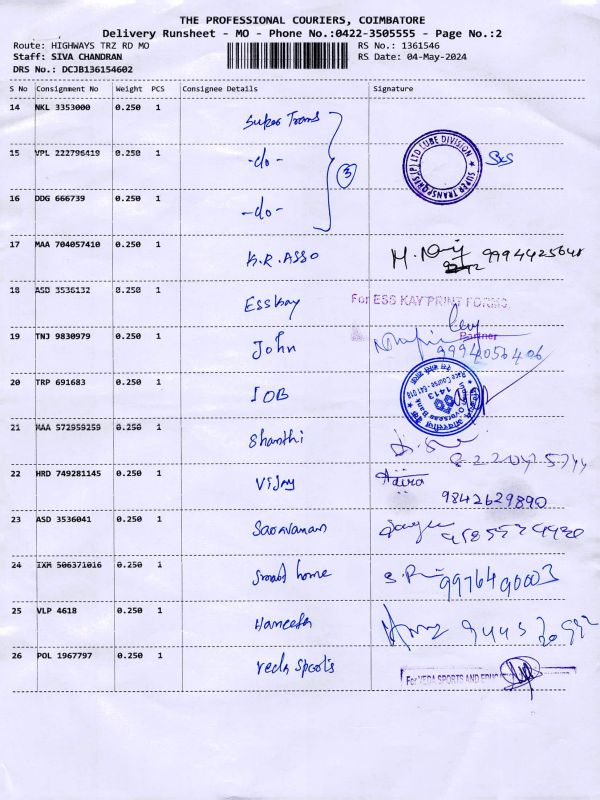 THE PROFESSIONAL COURIERS, COIMBATORE
Delivery Runsheet - MO - Phone No.:0422-3505555 - Page No.:2
Route: HIGHWAYS TRZ RD MO
RS No.: 1361546
Staff: SIVA CHANDRAN
RS Date: 04-May-2024
DRS No.: DCJB136154602
S No Consignment No Weight PCS Consignee Details Signature
14 NKL 3353000 0.250 1 Super Trans
15 VPL 222796419 0.250 1 -do- 3
SUPER TRANSPORTS (P) LTD LUBE DIVISION
16 DDG 666739 0.250 1 -do-
17 MAA 704057410 0.250 1 K.R. ASSO 9994425648
18 ASD 3536132 0.250 1 Esskay For ESS KAY PRINT FORMS
Partner
19 TNJ 9830979 0.250 1 John 99940 56406
20 TRP 691683 0.250 1 IOB
Indian Overseas Bank
1413
21 MAA 572959259 0.250 1 Shanthi
22 HRD 749281145 0.250 1 Vijay
9842629890
23 ASD 3536041 0.250 1 Saravanan
24 IXM 506371016 0.250 1 Smart home 9976490003
25 VLP 4618 0.250 1 Haneefa
26 POL 1967797 0.250 1 Veda Sports For VEDA SPORTS AND